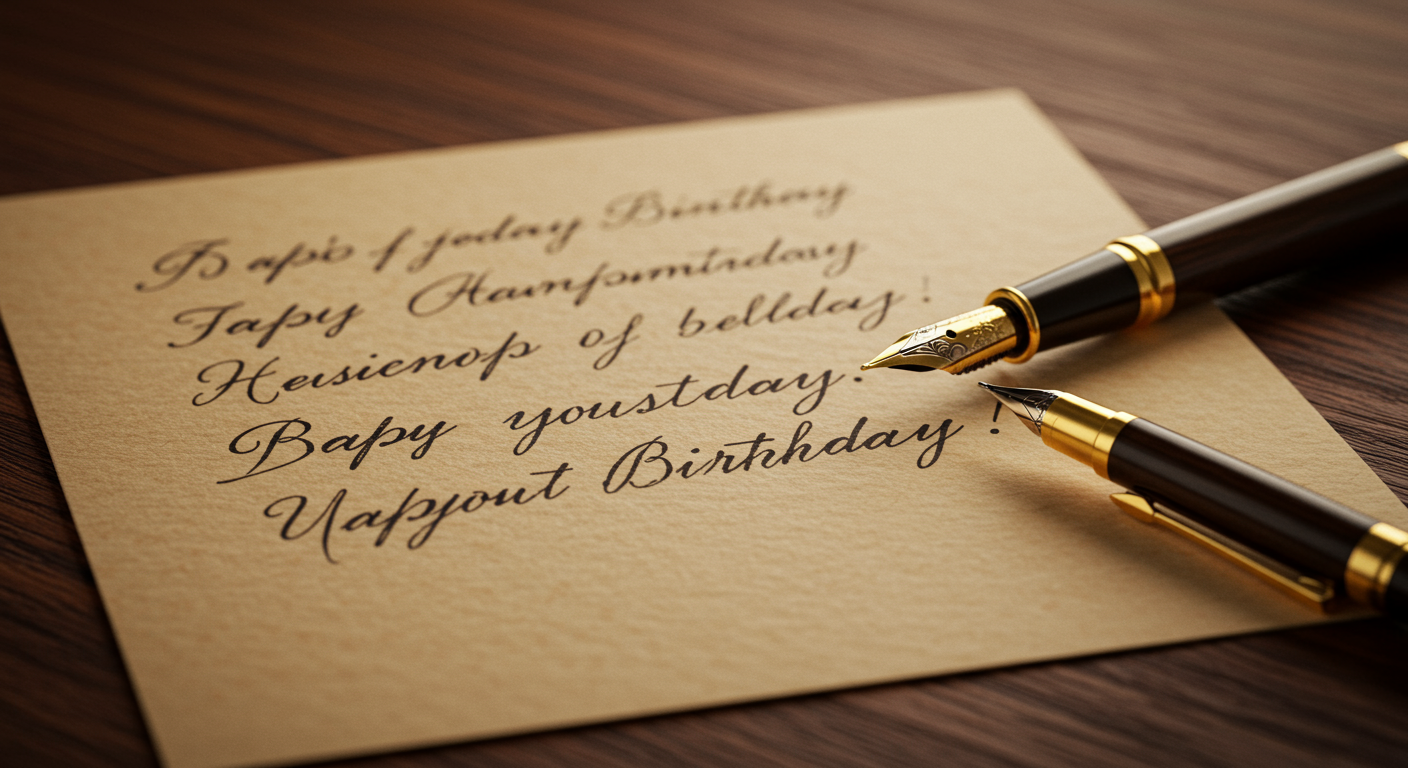 Bapo f joday Binthay
Tapy Hampmtrday
Heusicnop of bellday!
Bapy youstday.
Uapyout Birthhday!